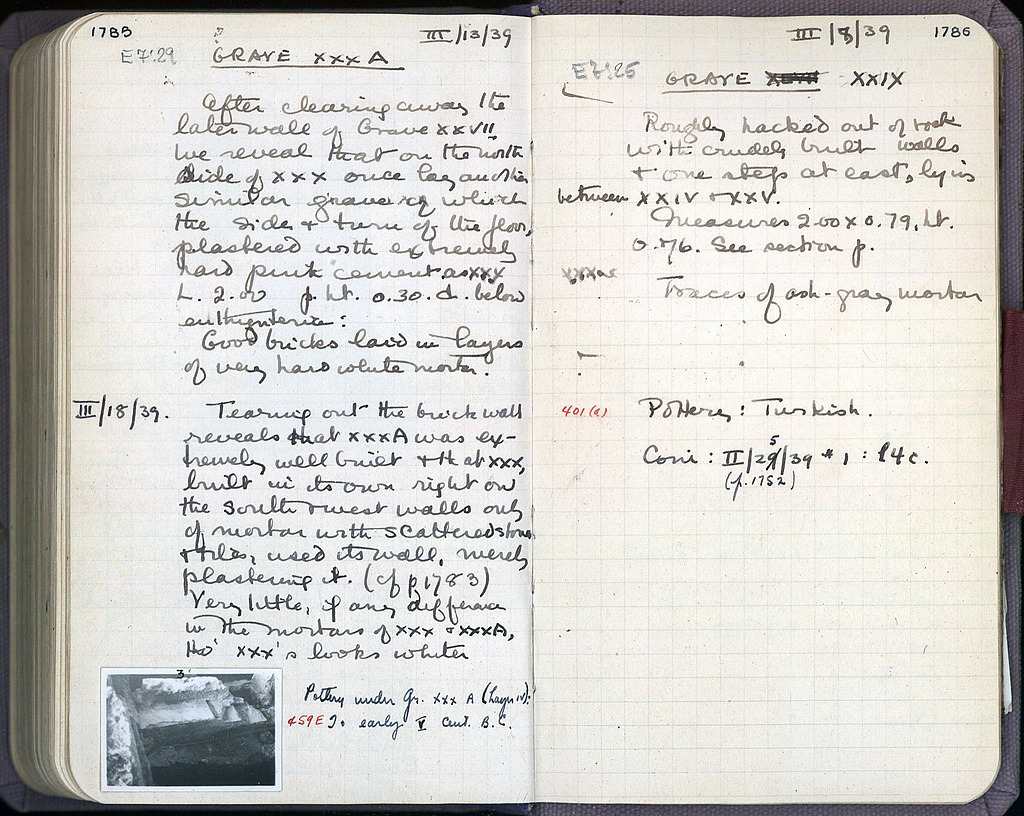 1785
III/13/39
E 7:29
GRAVE XXX A
After clearing away the
later wall of Grave XXVII
we reveal that on the north
side of XXX once lay another
similar grave of which
the side & turn of the floor,
plastered with extremely
hard pink cement as XXX
L. 2.00 p. ht. 0.30. d. below
euthynteria:
Good bricks laid in layers
of very hard white mortar.
III/18/39.
Tearing out the brick wall
reveals that XXXA was ex-
tremely well built & that XXX,
built in its own right on
the south & west walls only
of mortar with scattered stones
& tiles, used its wall, merely
plastering it. (cf p 1783)
Very little, if any difference
in the mortars of XXX & XXXA,
tho' XXX's looks whiter
3
Pottery under Gr. XXX A (Layer IV):
459E To early V Cent. B.C.
III/8/39
1786
E 7:25
GRAVE XXIX
Roughly hacked out of rock
with crudely built walls
& one step at east, lying
between XXIV & XXV.
Measures 2.00 x 0.79, ht.
0.76. See section p.
Traces of ash-gray mortar
401(a) Pottery: Turkish.
Coin: II/25/39 #1: 14c.
(p. 1752)